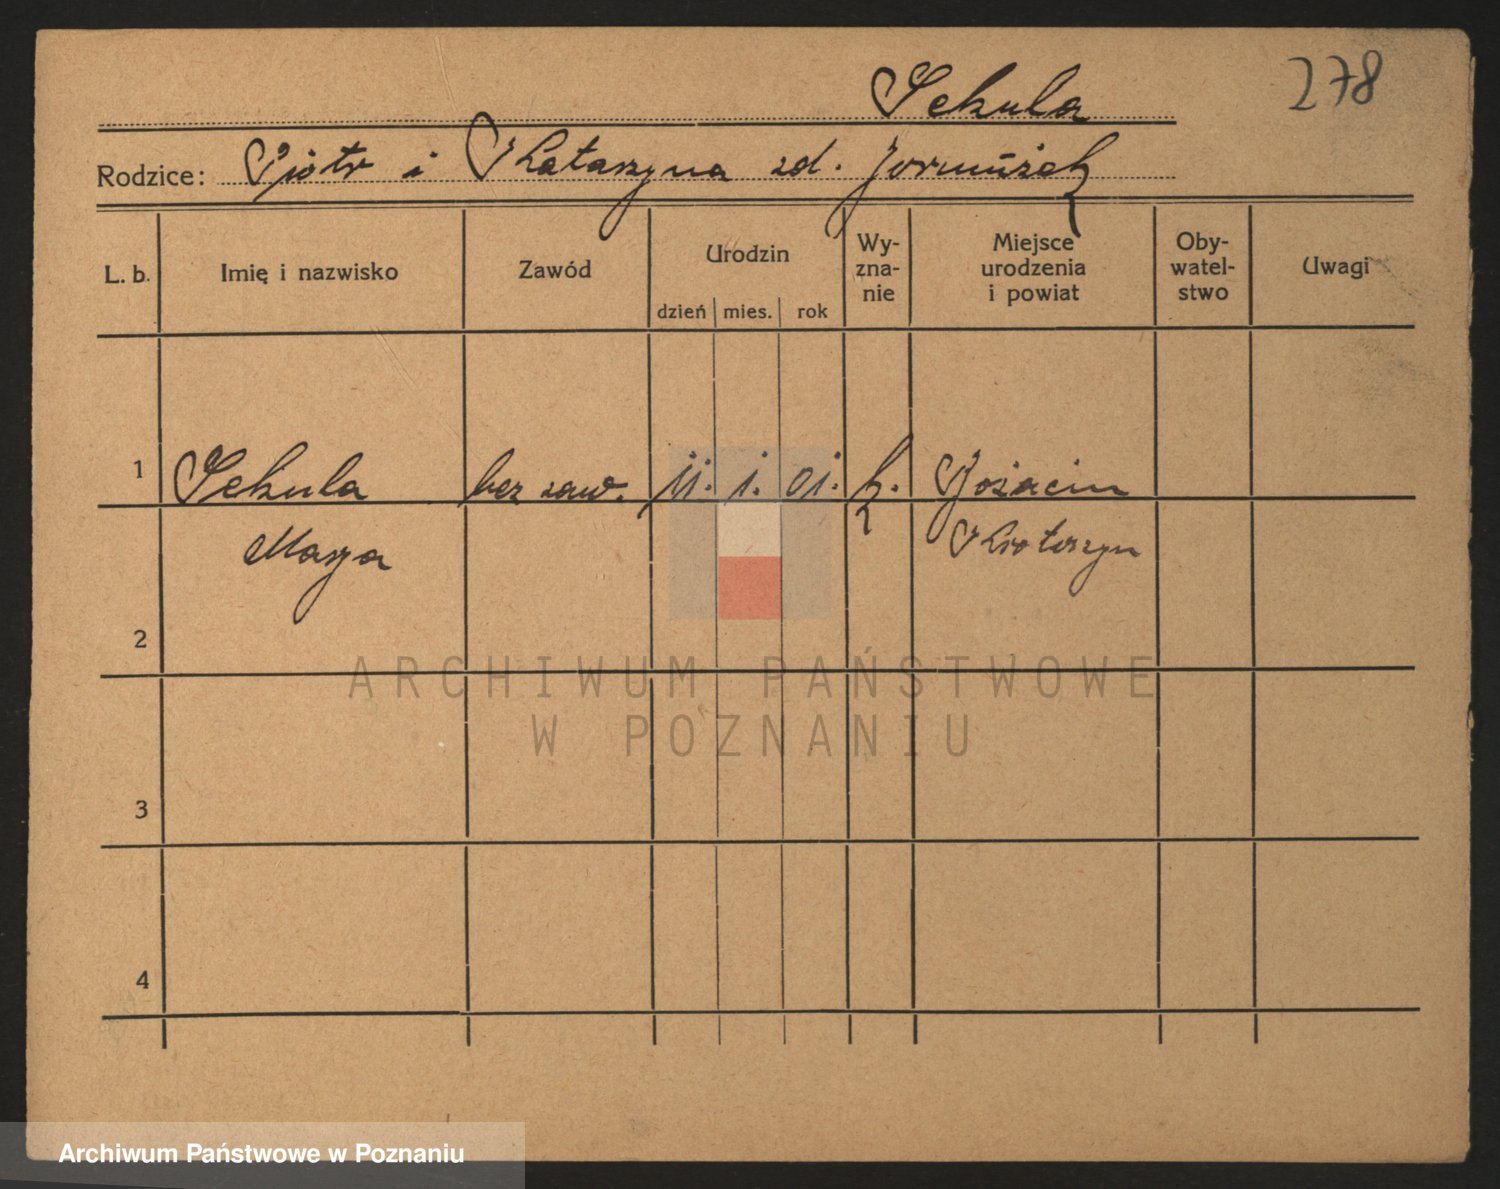 278
Sekula
Rodzice: Piotr i Katarzyna zd.
L. b. Imię i nazwisko Zawód Urodzin dzień mies. rok Wy-zna-nie Miejsce urodzenia i powiat Oby-watel-stwo Uwagi
1 Sekula bez zaw. 11. 1. 01. k.
Marja Krotoszyn
2
3
4
ARCHIWUM PAŃSTWOWE
W POZNANIU
Archiwum Państwowe w Poznaniu